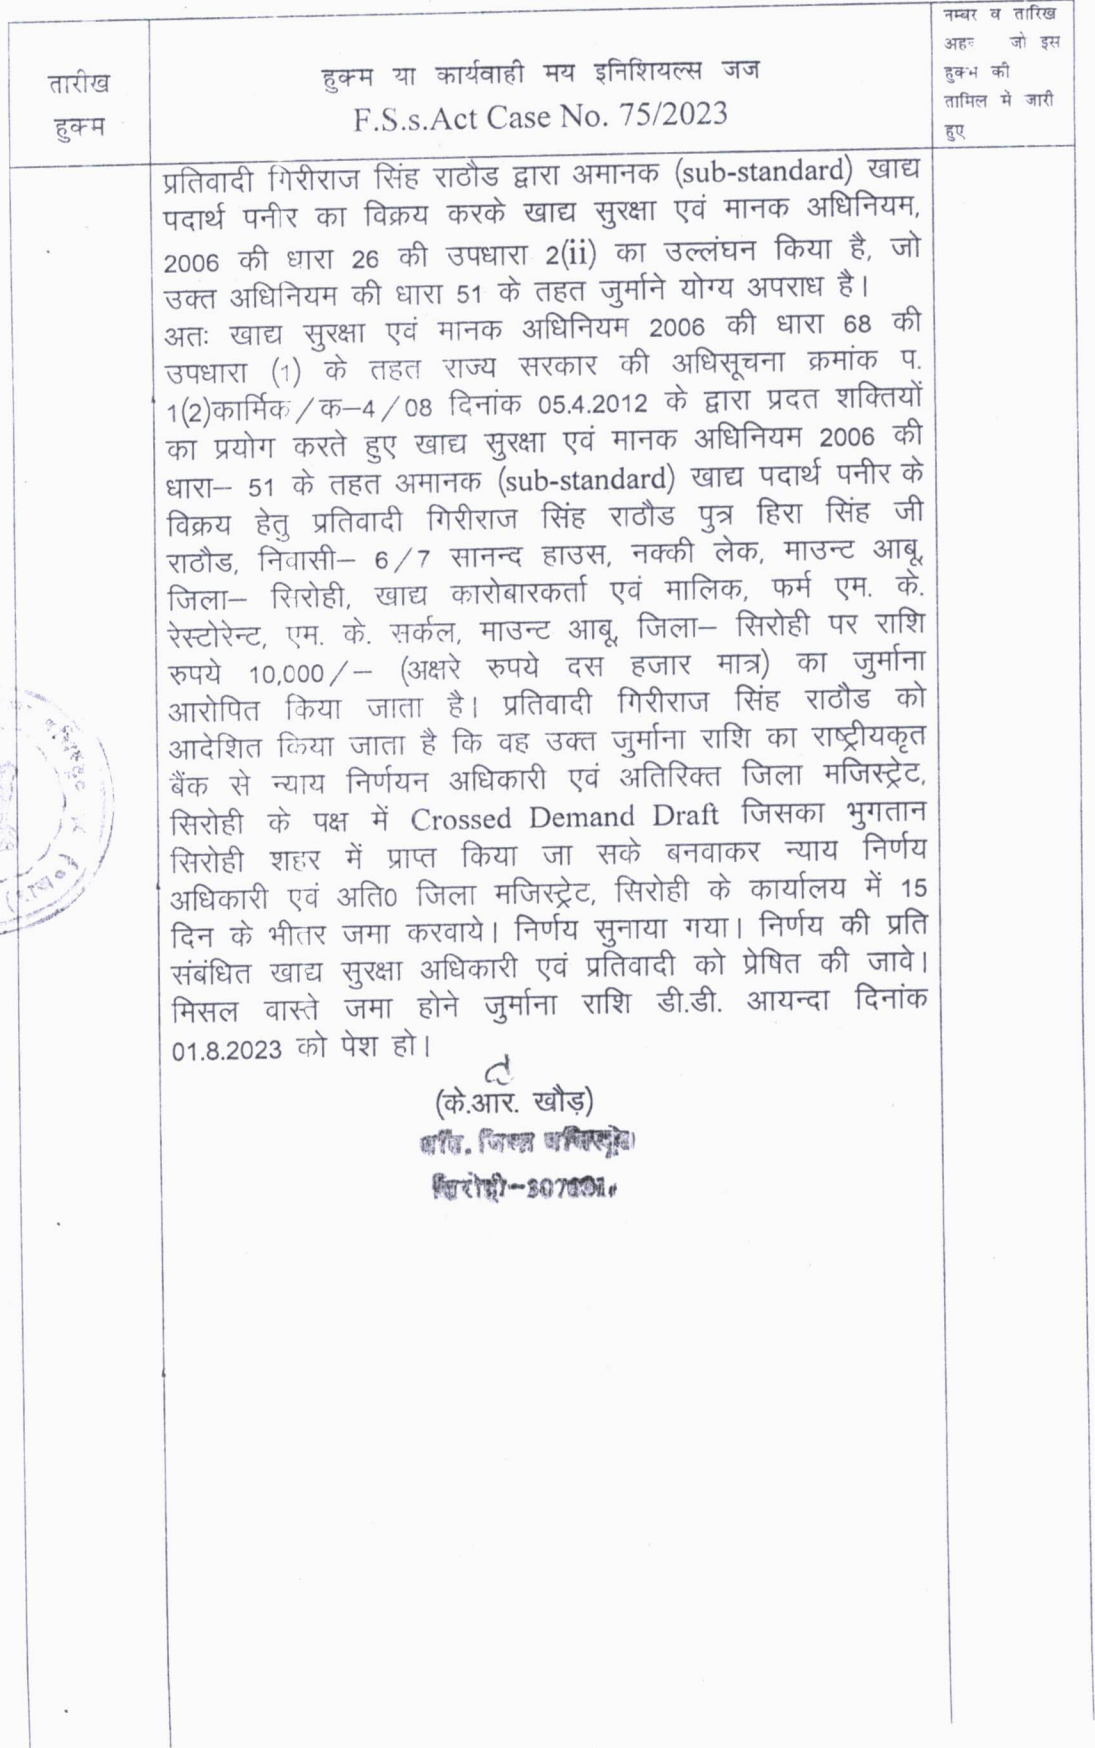 तारीख
हुक्म
हुक्म या कार्यवाही मय इनिशियल्स जज
F.S.s.Act Case No. 75/2023
नम्बर व तारिख
जो इस
हुक्म की
तामिल मे जारी
हुए
प्रतिवादी गिरीराज सिंह राठौड द्वारा अमानक (sub-standard) खाद्य
पदार्थ पनीर का विक्रय करके खाद्य सुरक्षा एवं मानक अधिनियम,
2006 की धारा 26 की उपधारा 2(ii) का उल्लंघन किया है, जो
उक्त अधिनियम की धारा 51 के तहत जुर्माने योग्य अपराध है।
अतः खाद्य सुरक्षा एवं मानक अधिनियम 2006 की धारा 68 की
उपधारा (1) के तहत राज्य सरकार की अधिसूचना क्रमांक प.
1(2)कार्मिक/क–4/08 दिनांक 05.4.2012 के द्वारा प्रदत शक्तियों
का प्रयोग करते हुए खाद्य सुरक्षा एवं मानक अधिनियम 2006 की
धारा– 51 के तहत अमानक (sub-standard) खाद्य पदार्थ पनीर के
विक्रय हेतु प्रतिवादी गिरीराज सिंह राठौड पुत्र हिरा सिंह जी
राठौड, निवासी– 6/7 सानन्द हाउस, नक्की लेक, माउन्ट आबू,
जिला– सिरोही, खाद्य कारोबारकर्ता एवं मालिक, फर्म एम. के.
रेस्टोरेन्ट, एम. के. सर्कल, माउन्ट आबू, जिला– सिरोही पर राशि
रुपये 10,000/– (अक्षरे रुपये दस हजार मात्र) का जुर्माना
आरोपित किया जाता है। प्रतिवादी गिरीराज सिंह राठौड को
आदेशित किया जाता है कि वह उक्त जुर्माना राशि का राष्ट्रीयकृत
बैंक से न्याय निर्णयन अधिकारी एवं अतिरिक्त जिला मजिस्ट्रेट,
सिरोही के पक्ष में Crossed Demand Draft जिसका भुगतान
सिरोही शहर में प्राप्त किया जा सके बनवाकर न्याय निर्णय
अधिकारी एवं अति0 जिला मजिस्ट्रेट, सिरोही के कार्यालय में 15
दिन के भीतर जमा करवाये। निर्णय सुनाया गया। निर्णय की प्रति
संबंधित खाद्य सुरक्षा अधिकारी एवं प्रतिवादी को प्रेषित की जावे।
मिसल वास्ते जमा होने जुर्माना राशि डी.डी. आयन्दा दिनांक
01.8.2023 को पेश हो।
(के.आर. खौड़)
अति. जिला मजिस्ट्रेट
सिरोही–307001